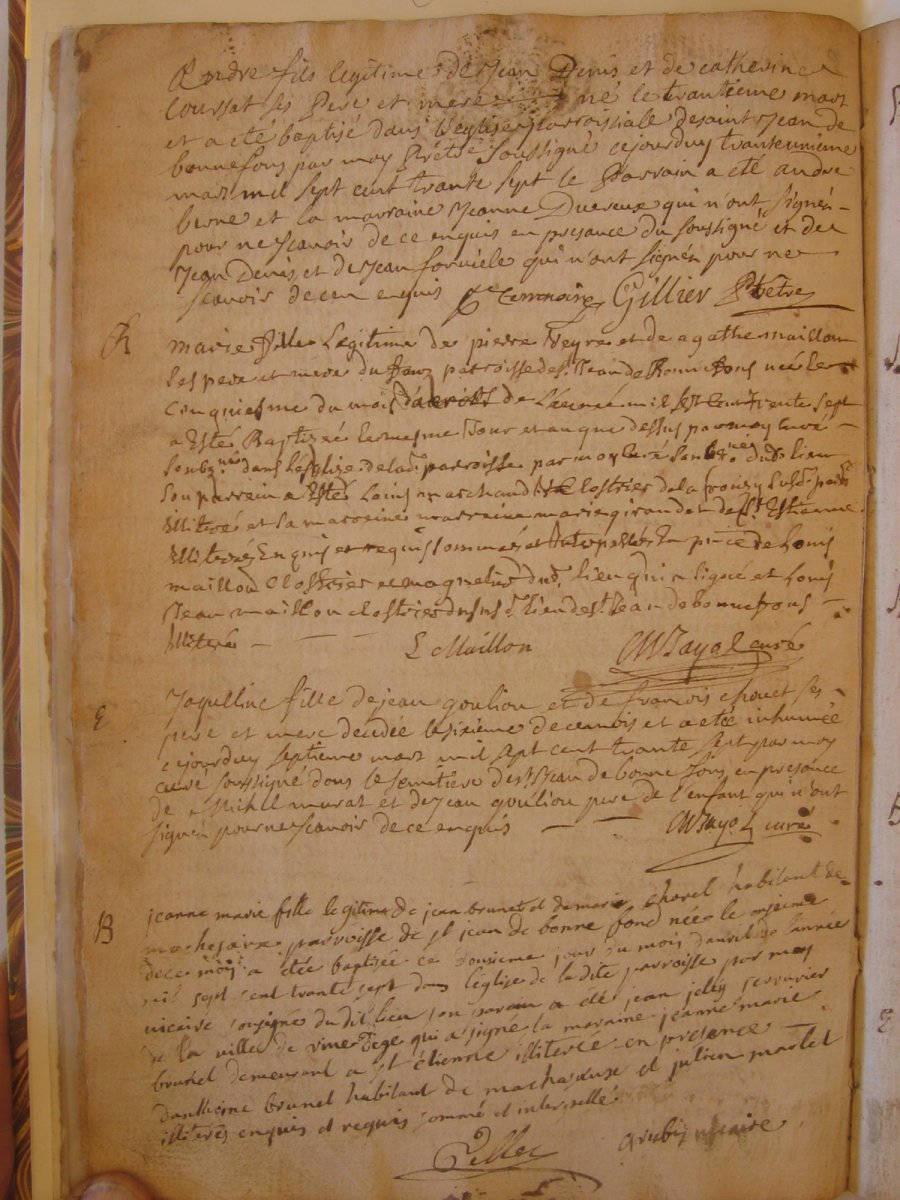 Andre fils legitime de Jean Denis et de catherine
Coursat ses Pere et mere né le trantieme mars
et a eté baptisé dans l'eglise parroissiale de saint Jean de
bonnefons par moy Prêtre soussigné cejourduy tranteunieme
mars mil sept cent trante sept le Parrain a eté andre
berne et la marraine Jeanne Duereux qui n'ont signés
pour ne scavoir de ce enquis en presance du soussigné et de
Jean Denis, et de Jean qui n'ont signés pour ne
scavoir de ce enquis Gillier Prêtre
marie fille Legitime de pierre Neyre et de agathe maillon
Ses pere et mere du parroisse de st Jean de Bonnefons née le
Cinquiesme du mois de Lannée mil sept Cent Trente Sept
a Esté Baptizée le mesme Jour et an que dessus par moy Curé
Soubz.né dans Léglize de lad. parroisse par moy Curé Soubz.né dud. lieu
Son parrein a Esté Louis marchand Clostrier de la
illitéré et sa marreine marraine marie giraudet de St Estienne
illitérés Enquis et requis sommés et Interpellés En p.nce de Louis
maillon Clostrier et dud. lieu qui a signé et Louis
Jean maillon clostrier du susd. lieu de st Jean de bonnefons
illiteré L Maillon Jayol curé
E Jaquline fille de jean gouliou et de francois chouet ses
pere et mere decedée le sixieme de ce mois et a eté inhumée
cejourduy septieme mars mil sept cent trante sept par moy
curé soussigné dans le semitiere de st Jean de bonne fons en presance
de Michel murat et de Jean gouliou pere de l'enfant qui n'ont
signés pour ne scavoir de ce enquis Jayol curé
B jeanne marie fille legitime de jean brunet et de marie charel habitant de
machesaux parroisse de st jean de bonne fond née le onzieme
de ce mois a étée baptisée ce donsieme jour du mois davril de l'année
mil sept cent trante sept dans l'église de la dite parroisse par moy
vicaire du dit lieu son parain a été jean serrurier
de la ville de qui a signé la maraine jeanne marie
brunel demeurant a st étienne illiterée en presance
danthoine brunel habitant de machasaux et julien martel
illiterés enquis et requis sommé et interpellé
vicaire